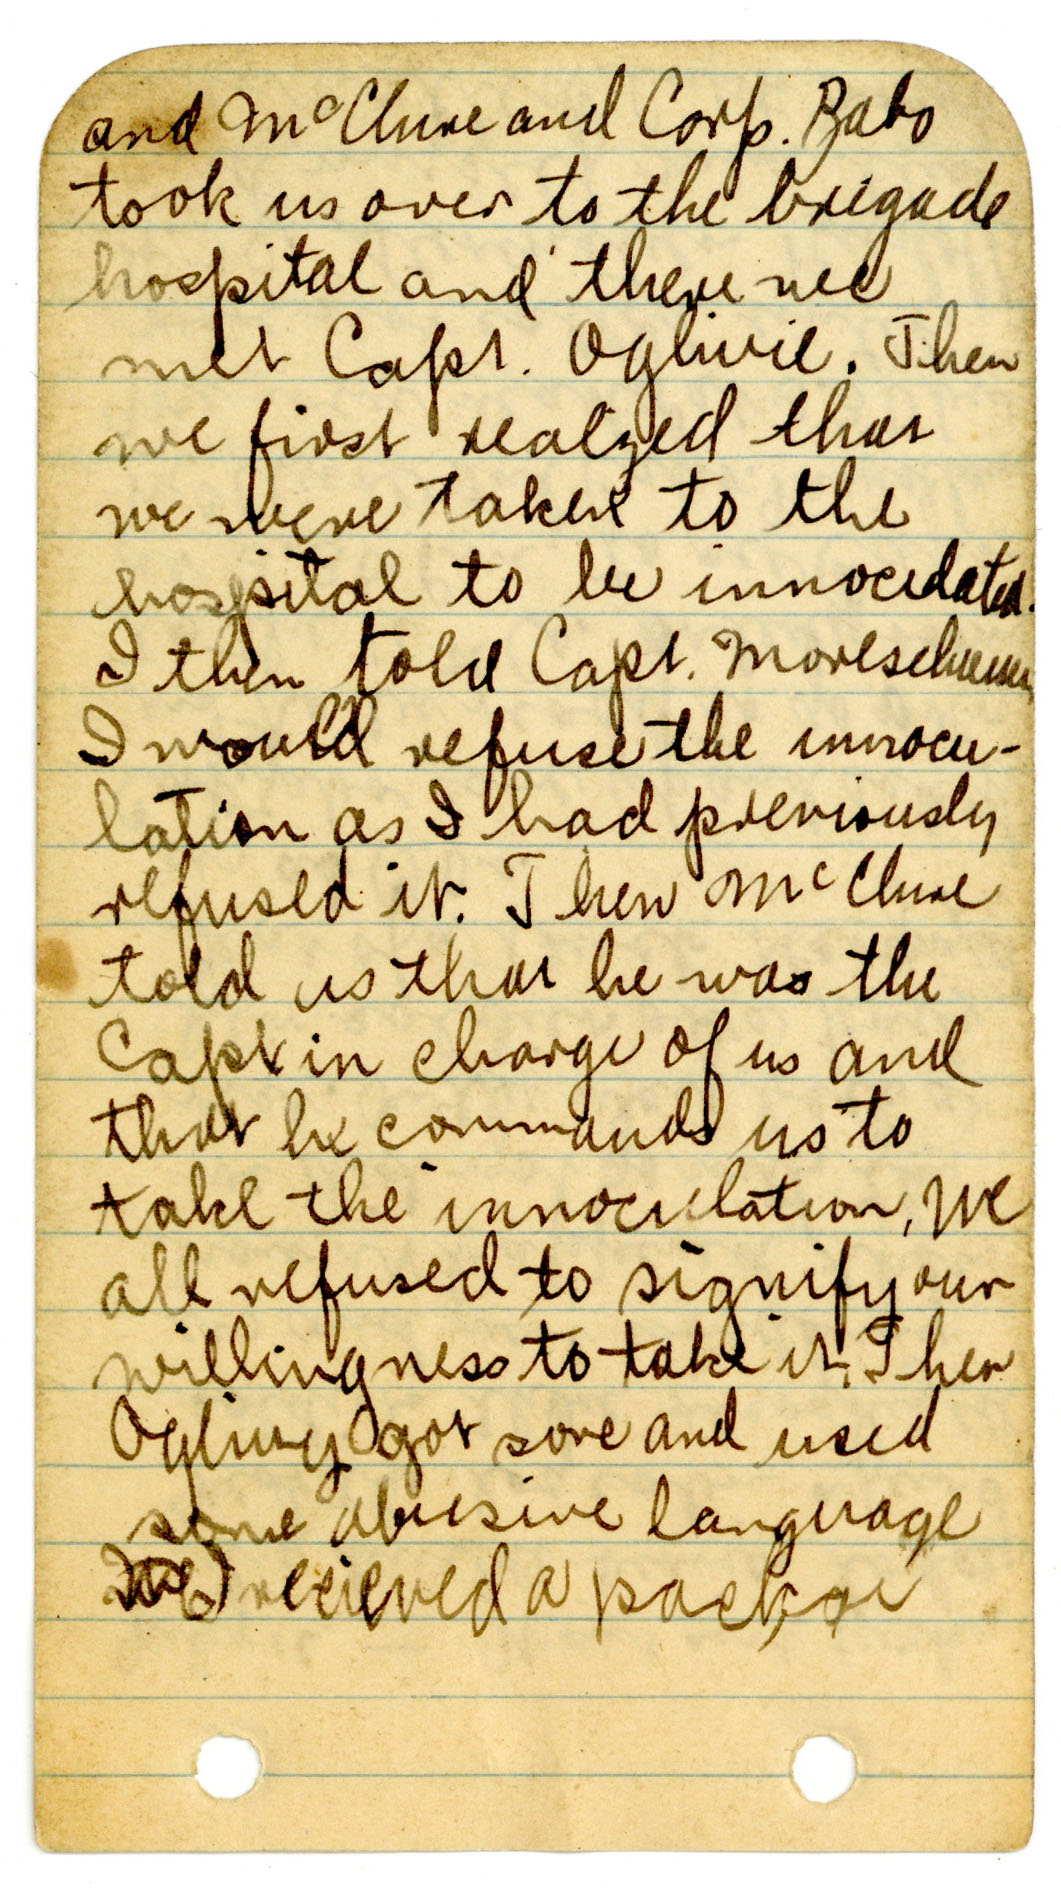 and McClure and Corp. Babo
took us over to the brigade
hospital and there we
met Capt. Oglivie. Then
we first realized that
we were taken to the
hospital to be innoculated.
I then told Capt.
I would refuse the innocu-
lation as I had previously
refused it. Then McClure
told us that he was the
Capt in charge of us and
that he commands us to
take the innoculation, We
all refused to signify our
willingness to take it. Then
Oglivy got sore and used
some abusive language
We recieved a packge